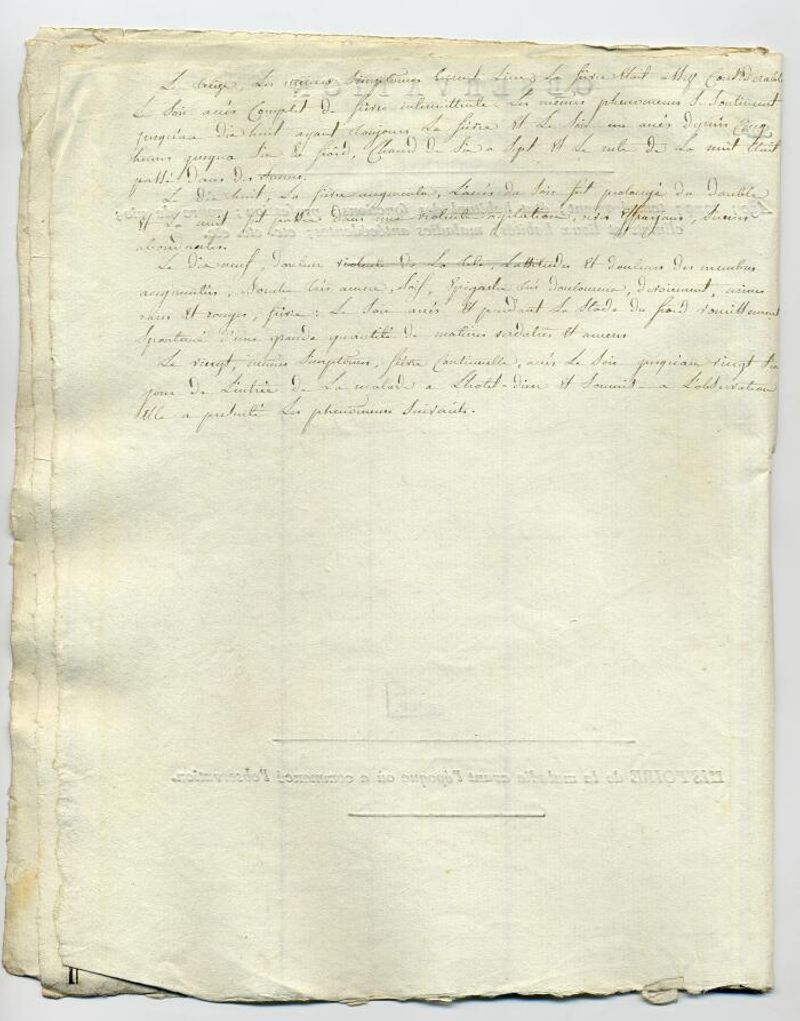 Le treize, Les mêmes Simptomes eurent Lieu, La fièvre était assez Considerable
Le Soir accès Complet de fièvre intermittente. Les mêmes phenomenes S. Soutinrent
jusqu'au dix huit ayant toujours La fièvre et Le Soir un accès depuis Cinq
heures jusqua Six de froid, Chaud de Six a Sept et Le reste de La nuit était
passé dans des Sueurs.
Le dix huit, La fièvre augmenta, L'accès du Soir fut prolongé du Double
et La nuit fut passé dans une violente agitation, Sueurs
abondantes.
Le dix neuf, douleur violente de La tête, Lassitudes et douleurs des membres
augmentées, Bouche très amere, Soif, Epigastre très Douloureux, devoiement, urines
rares et rouges, fièvre : Le Soir accès et pendant Le Stade du froid vomissement
Spontané d'une grande quantité de matières verdatres et ameres
Le vingt, mêmes Simptomes, fièvre Continuelle, accès Le Soir jusqu'au vingt Six
jour de L'entrée de La malade a L'hotel-dieu et Soumis a L'observation
Elle a presenté Les phenomenes Suivants.
HISTOIRE de la maladie avant l'époque où a commencé l'observation.